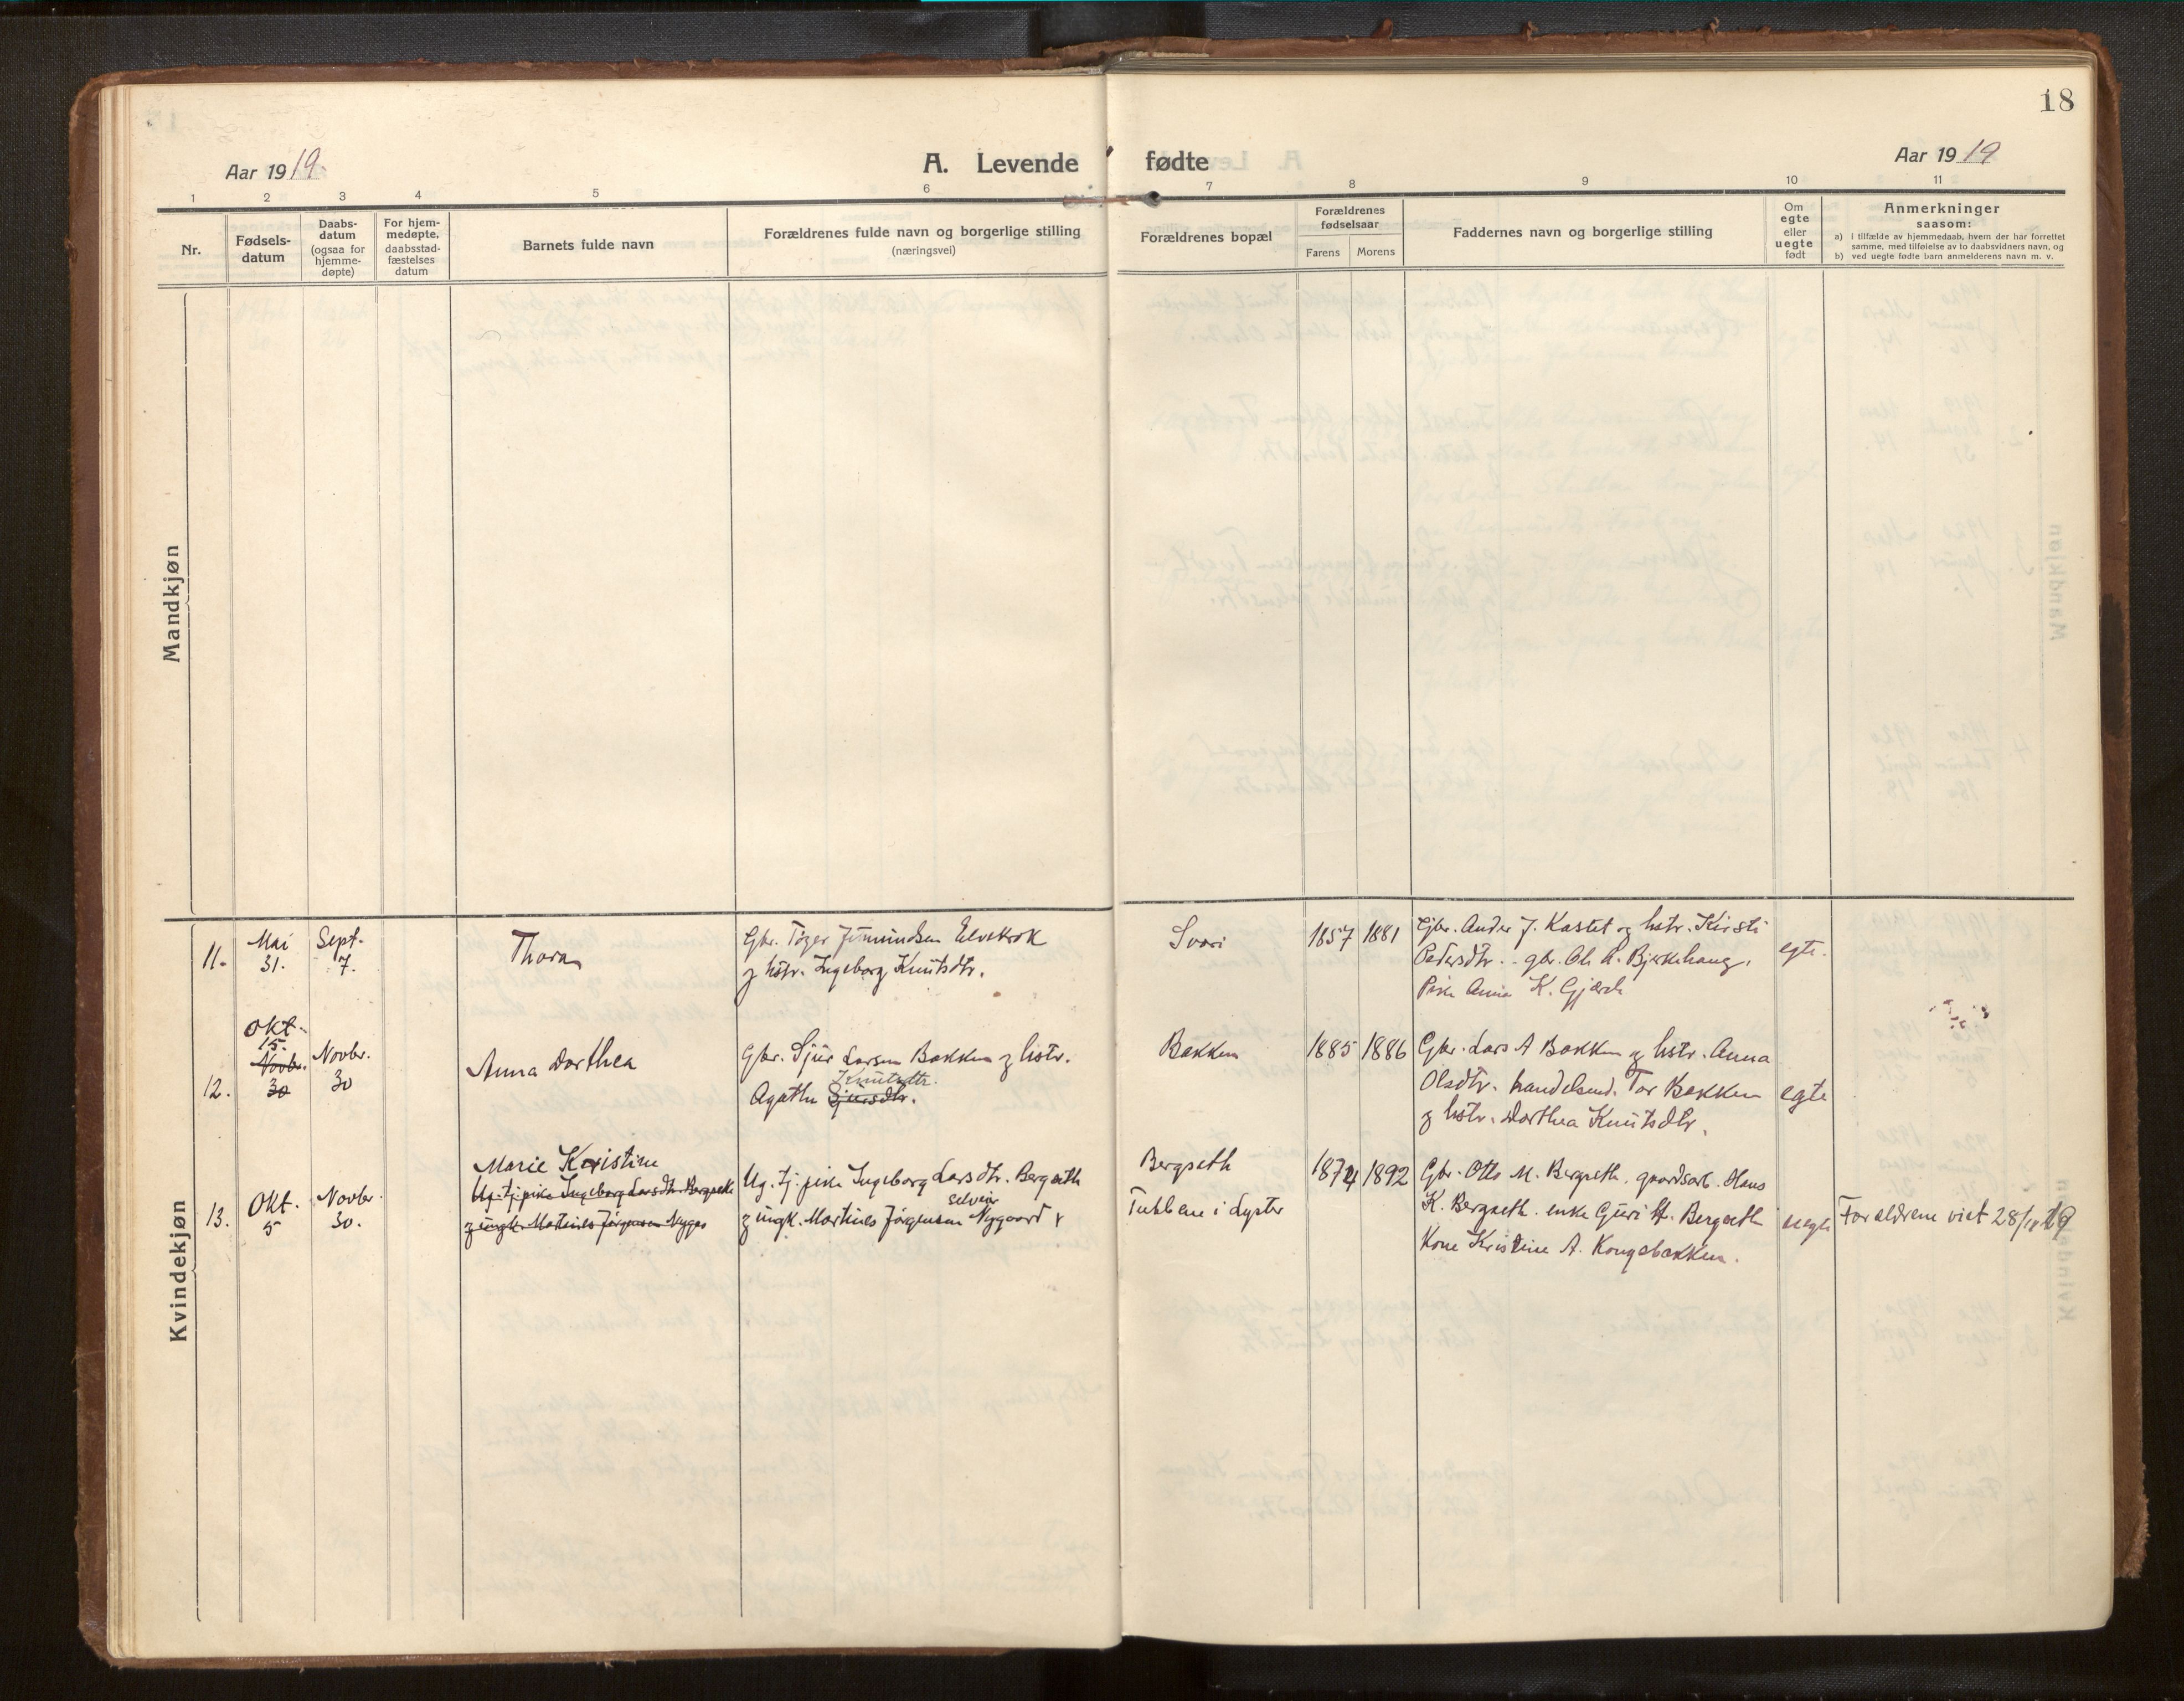 18
Aar 1919
A. Levende fødte
Aar 1919
1 2 3 4 5 6 7 8 9 10 11
Nr.
Fødsels-
datum
Daabs-
datum
(ogsaa for
hjemme-
døpte)
For hjem-
medøpte,
daabsstad-
fæstelses
datum
Barnets fulde navn
Forældrenes fulde navn og borgerlige stilling
(næringsvei)
Forældrenes bopæl
Forældrenes
fødselsaar
Farens Morens
Faddernes navn og borgerlige stilling
Om
egte
eller
uegte
født
Anmerkninger
saasom:
a) i tilfælde av hjemmedaab, hvem der har forrettet
samme, med tilføielse av to daabsvidners navn, og
b) ved uegte fødte barn anmelderens navn m. v.
Mandkjøn
Kvindekjøn
11.
Mai
31.
Sept.
7.
Thora
Gbr. Elvekrok
og hstr. Ingeborg Knutsdtr.
1857 1881
Gbr. Anders J. Kastet og hstr. Kirsti
Pedersdtr. gbr. Ole Bjerkehaug,
Pike Anna K. Gjerde
egte.
12.
Okt.
15.
Novbr.
30
Novbr.
30
Anna Dorthea
Gbr. Sjur Larsen Bakken og hstr.
Knutsdtr.
Agathe Sjursdtr.
Bakken
1885 1886
Gbr. Lars A Bakken og hstr. Anna
Olsdtr. handelsmd. Tor Bakken
og hstr. Dorthea Knutsdtr.
egte
13.
Okt.
5
Novbr.
30.
Marie Kristine
Ug. tj. pike Ingeborg Larsdtr. Bergseth
og ungk. Martines Jørgensen Nygar
Ug. tj. pike Ingeborg Larsdtr. Bergseth
og ungk. Martines Jørgensen Nygaard
Bergseth
i Lyster
1874 1892
Gbr. Otto M. Bergseth, gaardsarb. Hans
K. Bergseth. enke Guri Bergseth
Kone Kristine A. Kongsbakken.
uegte
Forældrene viet 28/ 19